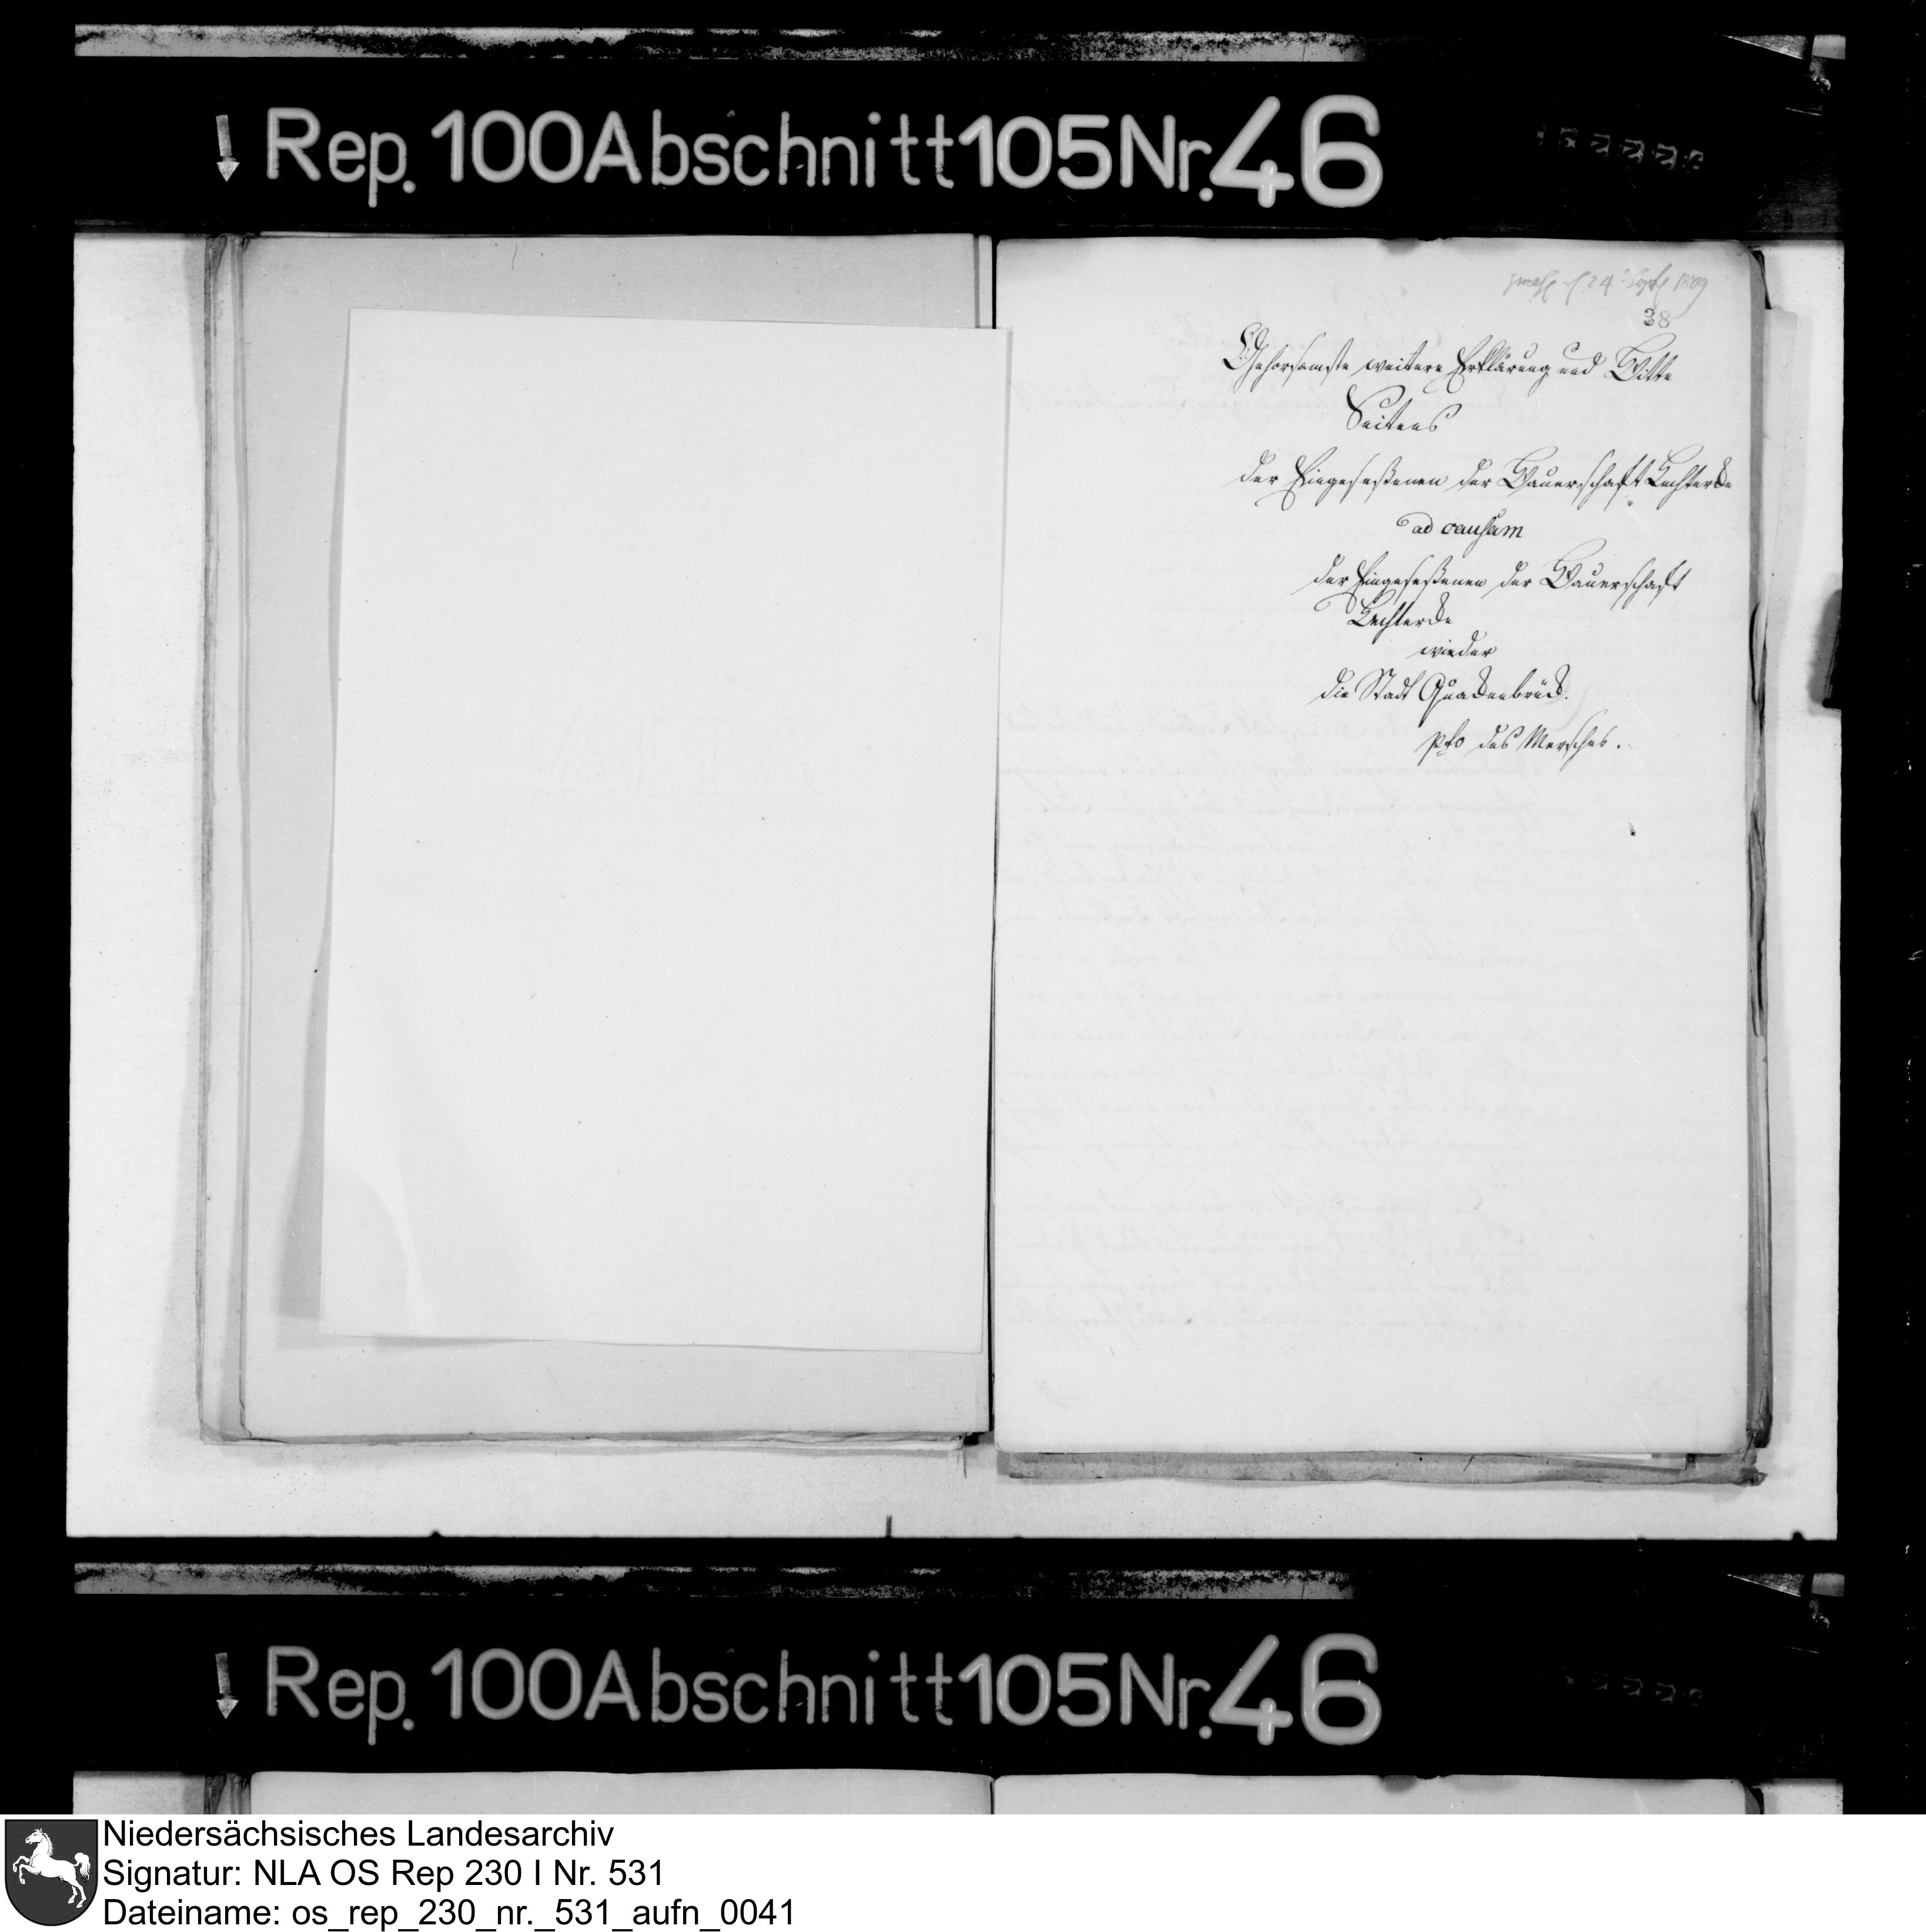 Rep. 100 Abschnitt 105 Nr. 46
24 Sept 1809
38
Gehorsamste weitere Erklärung und Bitte
Seitens
der Eingeseßenen der Bauerschaft Lechterde
ad causam
der Eingeseßenen der Bauerschaft
Lechterde
wieder
die Stadt Quackenbrück.
pto des Mersches.
Rep. 100 Abschnitt 105 Nr. 46
Niedersächsisches Landesarchiv
Signatur: NLA OS Rep 230 I Nr. 531
Dateiname: os_rep_230_nr._531_aufn_0041